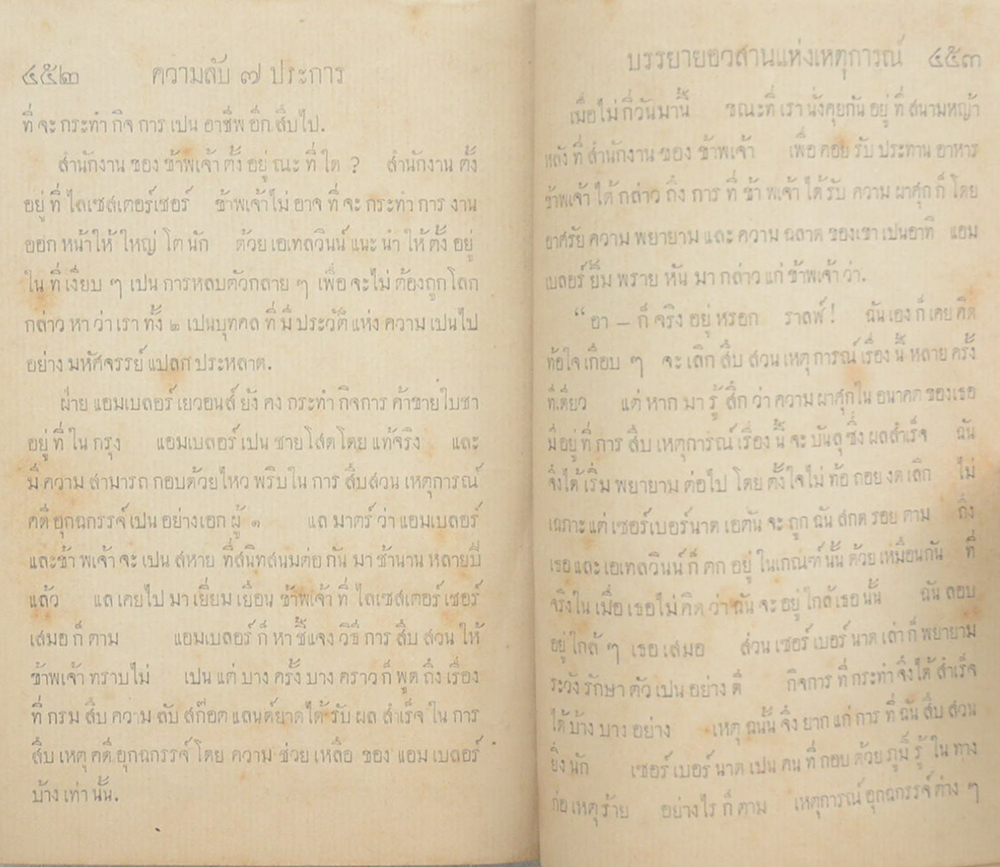 ๔๕๒ ความลับ ๗ ประการ
ที่ จะ กระทำ กิจ การ เปน อาชีพ อีก สืบไป.
สำนักงาน ของ ข้าพเจ้า ตั้ง อยู่ ณะ ที่ ใด ? สำนักงาน ตั้ง
อยู่ ที่ ไลเซสเตอร์เซอร์ ข้าพเจ้าไม่ อาจ ที่ จะ กระทำ การ งาน
ออก หน้าให้ ใหญ่ โต นัก ด้วย เอเทลวินน์ แนะ นำ ให้ ตั้ง อยู่
ใน ที่ เงียบ ๆ เปน การหลบตัวกลาย ๆ เพื่อ จะไม่ ต้องถูก โลก
กล่าว หา ว่า เรา ทั้ง ๒ เปนบุทคล ที่ มี ประวัติ แห่ง ความ เปนไป
อย่าง มหัศจรรย์ แปลก ประหลาด.
ฝ่าย แอมเบลอร์ เยวอนส์ ยัง คง กระทำ กิจการ ค้าขายใบชา
อยู่ ที่ ใน กรุง แอมเบลอร์ เปน ชายโสด โดย แท้จริง และ
มี ความ สามารถ กอบด้วยไหว พริบใน การ สืบสวน เหตุการณ์
คดี อุกฉกรรจ์ เปน อย่างเอก ผู้ ๑ แล มาตร์ ว่า แอมเบลอร์
และข้า พเจ้า จะ เปน สหาย ที่สนิทสนมต่อ กัน มา ช้านาน หลายปี
แล้ว แล เคยไป มา เยี่ยม เยือน ข้าพเจ้า ที่ ไลเซสเตอร์ เซอร์
เสมอ ก็ ตาม แอมเบลอร์ ก็ หา ชี้แจง วิธี การ สืบ สวน ให้
ข้าพเจ้า ทราบไม่ เปน แต่ บาง ครั้ง บาง คราว ก็ พูด ถึง เรื่อง
ที่ กรม สืบ ความ ลับ สก๊อต แลนด์ยาด ได้ รับ ผล สำเร็จ ใน การ
สืบ เหตุ คดี อุกฉกรรจ์ โดย ความ ช่วย เหลือ ของ แอม เบลอร์
บ้าง เท่า นั้น.
บรรยายอวสานแห่งเหตุการณ์ ๔๕๓
เมื่อ ไม่ กี่วันมานี้ ขณะที่ เรา นั่งคุยกัน อยู่ ที่ สนามหญ้า
หลัง ที่ สำนักงาน ของ ข้าพเจ้า เพื่อ คอย รับ ประทาน อาหาร
ข้าพเจ้า ได้ กล่าว ถึง การ ที่ ข้า พเจ้า ได้ รับ ความ ผาศุก ก็ โดย
อาศรัย ความ พยายาม และ ความ ฉลาด ของเขา เปนอาทิ แอม
เบลอร์ ยิ้ม พราย หัน มา กล่าว แก่ ข้าพเจ้า ว่า.
“ อา — ก็ จริง อยู่ หรอก ราลฟ์ ! ฉัน เอง ก็ เคย คิด
ท้อใจ เกือบ ๆ จะ เลิก สืบ สวน เหตุ การณ์ เรื่อง นี้ หลาย ครั้ง
ทีเดียว แต่ หาก มา รู้ สึก ว่า ความ ผาศุกใน อนาคต ของเธอ
มีอยู่ ที่ การ สืบ เหตุการณ์ เรื่อง นี้ จะ บันลุ ซึ่ง ผลสำเร็จ ฉัน
จึงได้ เริ่ม พยายาม ต่อไป โดย ตั้งใจไม่ ท้อ ถอย งด เลิก ไม่
เฉภาะ แต่ เซอร์เบอร์นาด เอตัน จะ ถูก ฉัน สกด รอย ตาม ถึง
เธอ และ เอเทลวินน์ ก็ ตก อยู่ ในเกณฑ์ นั้น ด้วย เหมือนกัน ที่
จริงใน เมื่อ เธอไม่ คิด ว่า ฉัน จะ อยู่ ใกล้ เธอ นั้น ฉัน ลอบ
อยู่ ใกล้ ๆ เธอ เสมอ ส่วน เซอร์ เบอร์ นาด เล่า ก็ พยายาม
ระวัง รักษา ตัว เปน อย่าง ดี กิจการ ที่ กระทำ จึง ได้ สำเร็จ
ได้ บ้าง บาง อย่าง เหตุ ฉนั้น จึง ยาก แก่ การ ที่ ฉัน สืบ สวน
ยิ่ง นัก เซอร์ เบอร์ นาด เปน คน ที่ กอบ ด้วย ภูมิ รู้ ใน ทาง
ก่อ เหตุ ร้าย อย่างไร ก็ ตาม เหตุการณ์ อุกฉกรรจ์ ต่าง ๆ